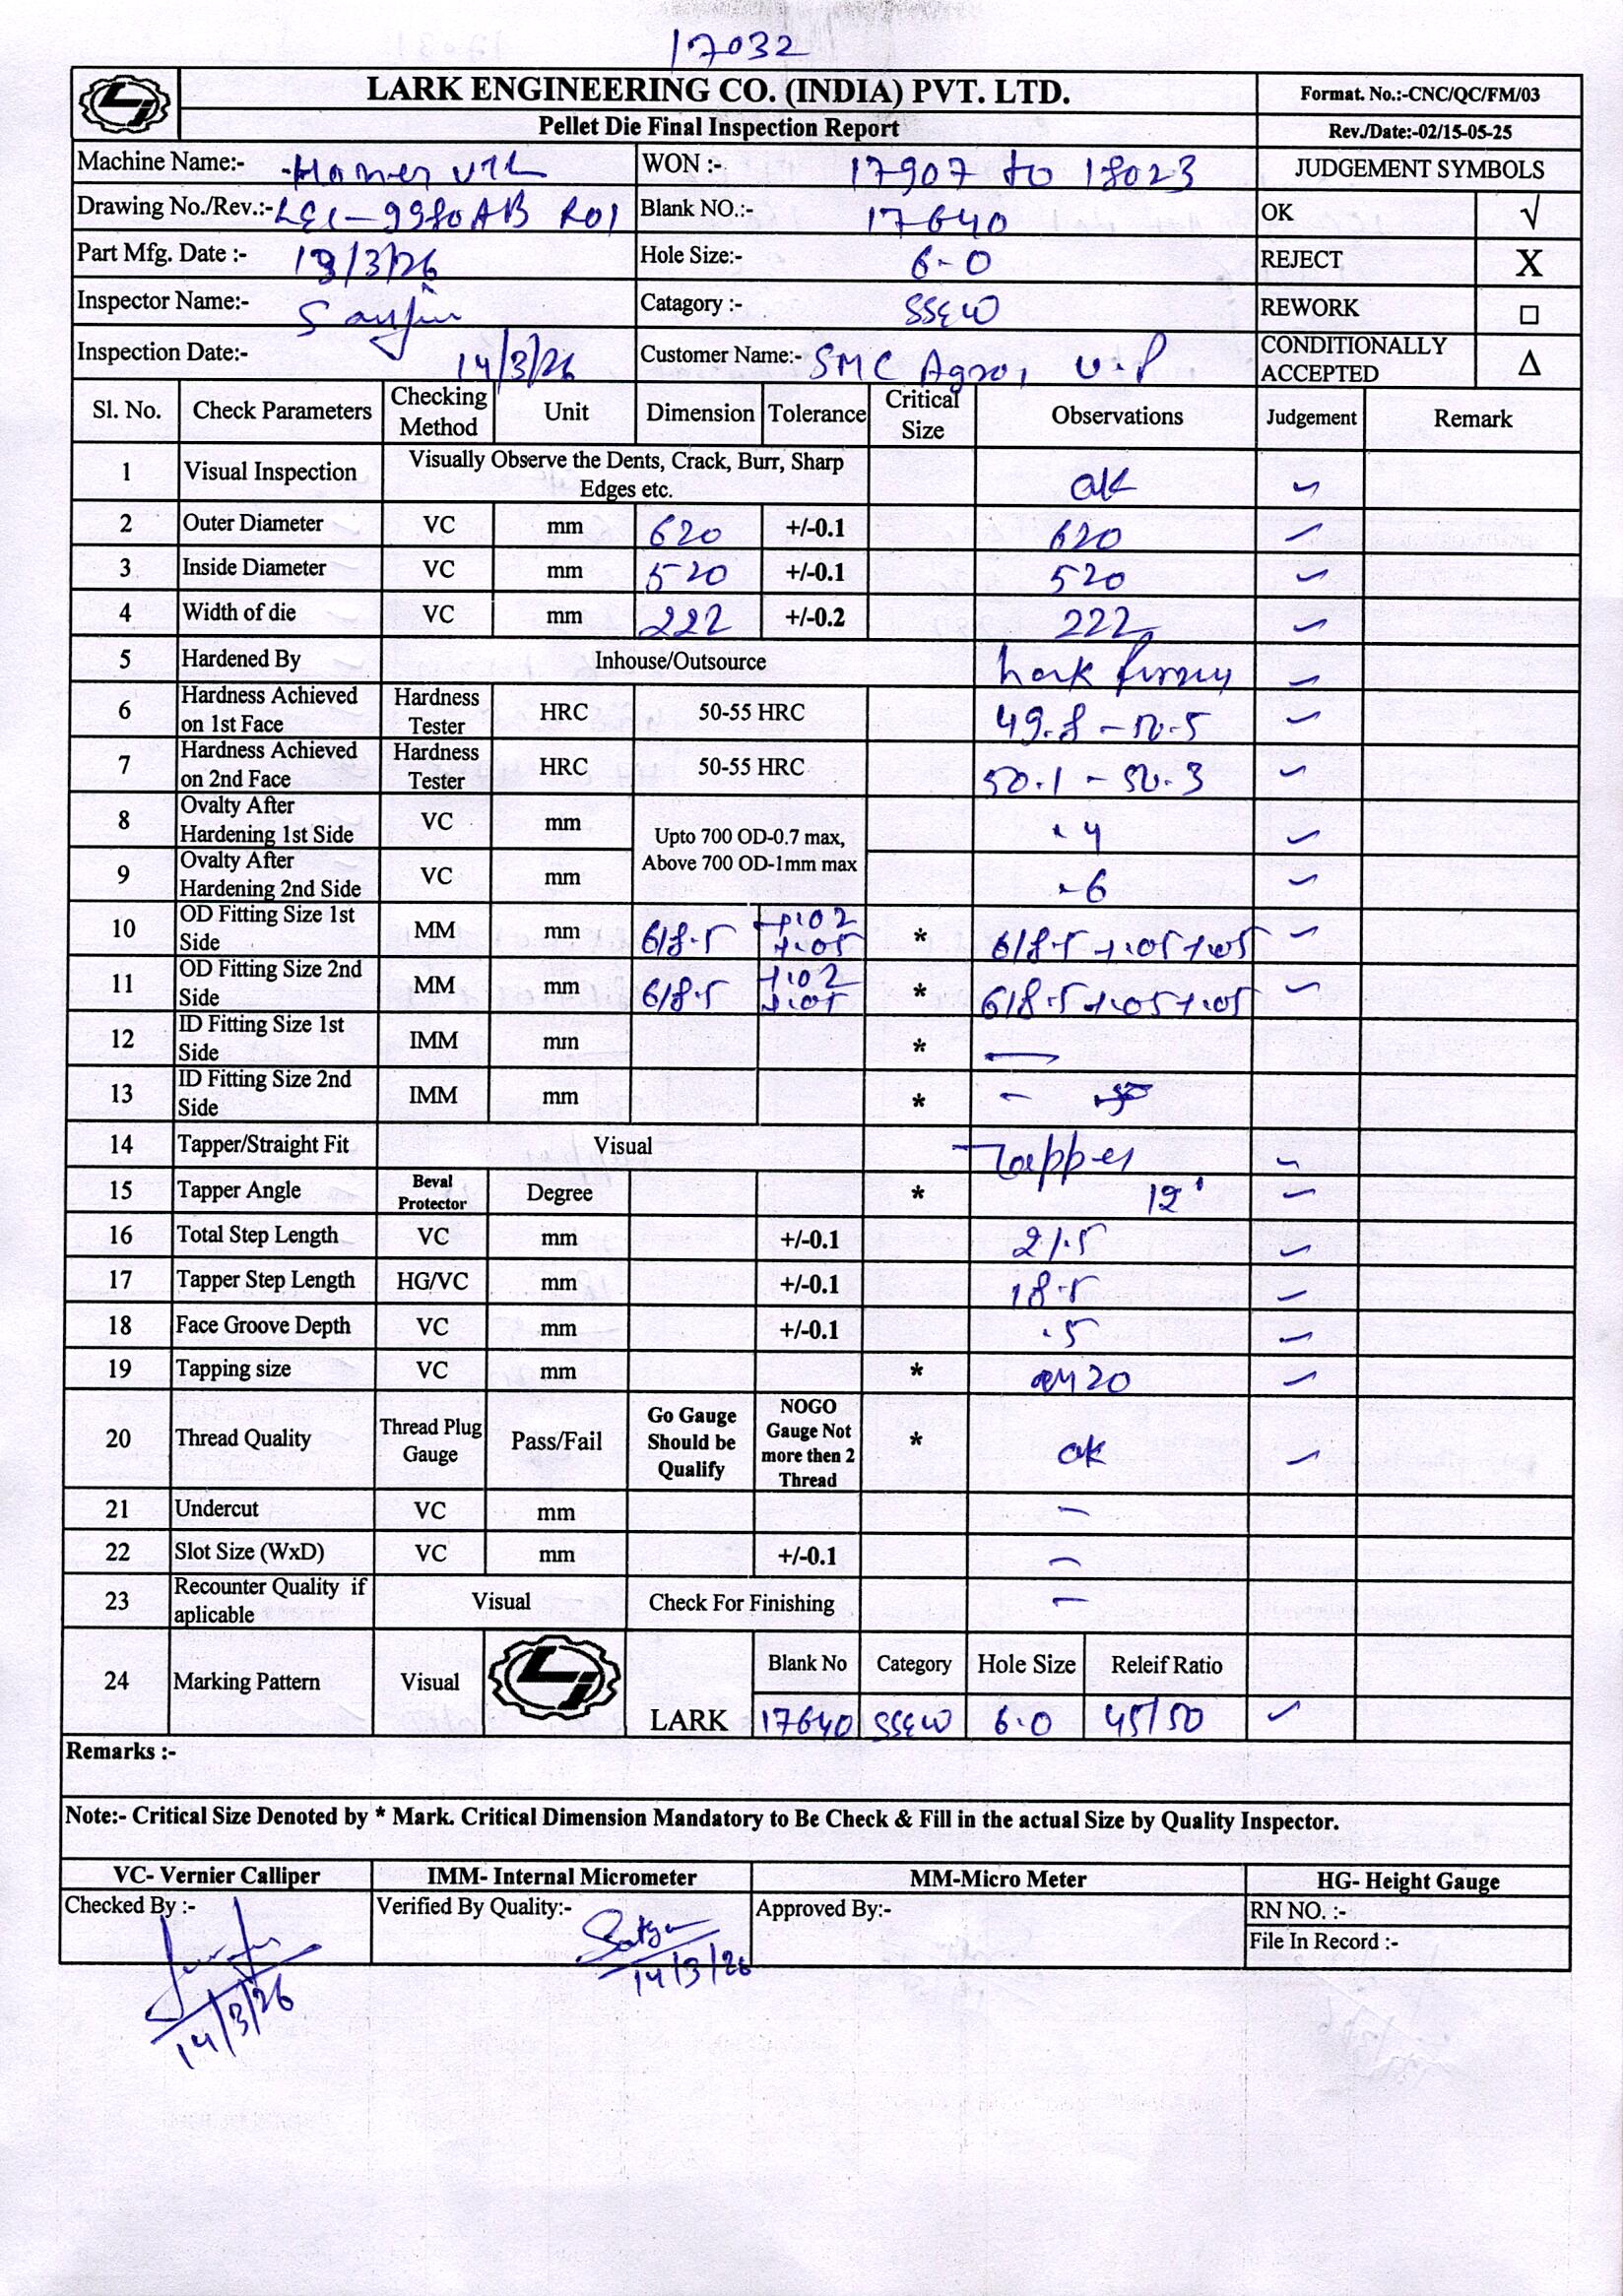 17032
LARK ENGINEERING CO. (INDIA) PVT. LTD.
Format. No.:-CNC/QC/FM/03
Pellet Die Final Inspection Report
Rev./Date:-02/15-05-25
Machine Name:-
WON :- 17907 to 18023
JUDGEMENT SYMBOLS
Drawing No./Rev.:- LEC-9980AB R01
Blank NO.:- 17640
OK √
Part Mfg. Date :- 13/3/26
Hole Size:- 6.0
REJECT X
Inspector Name:-
Catagory :- SSEW
REWORK □
Inspection Date:- 14/3/26
Customer Name:- SMC Agro, U.P
CONDITIONALLY ACCEPTED Δ
Sl. No. Check Parameters Checking Method Unit Dimension Tolerance Critical Size Observations Judgement Remark
1 Visual Inspection Visually Observe the Dents, Crack, Burr, Sharp Edges etc. ok
2 Outer Diameter VC mm 620 +/-0.1 620
3 Inside Diameter VC mm 520 +/-0.1 520
4 Width of die VC mm 222 +/-0.2 222
5 Hardened By Inhouse/Outsource
6 Hardness Achieved on 1st Face Hardness Tester HRC 50-55 HRC 49.8 - 50.5
7 Hardness Achieved on 2nd Face Hardness Tester HRC 50-55 HRC 50.1 - 50.3
8 Ovalty After Hardening 1st Side VC mm Upto 700 OD-0.7 max, Above 700 OD-1mm max .4
9 Ovalty After Hardening 2nd Side VC mm .6
10 OD Fitting Size 1st Side MM mm 618.5 +.02 +.05 * 618.5 +.05 +.05
11 OD Fitting Size 2nd Side MM mm 618.5 +.02 +.05 * 618.5 +.05 +.05
12 ID Fitting Size 1st Side IMM mm * —
13 ID Fitting Size 2nd Side IMM mm * -
14 Tapper/Straight Fit Visual Tapper
15 Tapper Angle Beval Protector Degree * 12°
16 Total Step Length VC mm +/-0.1 21.5
17 Tapper Step Length HG/VC mm +/-0.1 18.5
18 Face Groove Depth VC mm +/-0.1 .5
19 Tapping size VC mm * M20
20 Thread Quality Thread Plug Gauge Pass/Fail Go Gauge Should be Qualify NOGO Gauge Not more then 2 Thread * ok
21 Undercut VC mm -
22 Slot Size (WxD) VC mm +/-0.1 -
23 Recounter Quality if aplicable Visual Check For Finishing -
24 Marking Pattern Visual LARK Blank No Category Hole Size Releif Ratio
17640 SSEW 6.0 45/50
Remarks :-
Note:- Critical Size Denoted by * Mark. Critical Dimension Mandatory to Be Check & Fill in the actual Size by Quality Inspector.
VC- Vernier Calliper IMM- Internal Micrometer MM-Micro Meter HG- Height Gauge
Checked By :- Verified By Quality:- Approved By:- RN NO. :-
File In Record :-
14/3/26
14/3/26